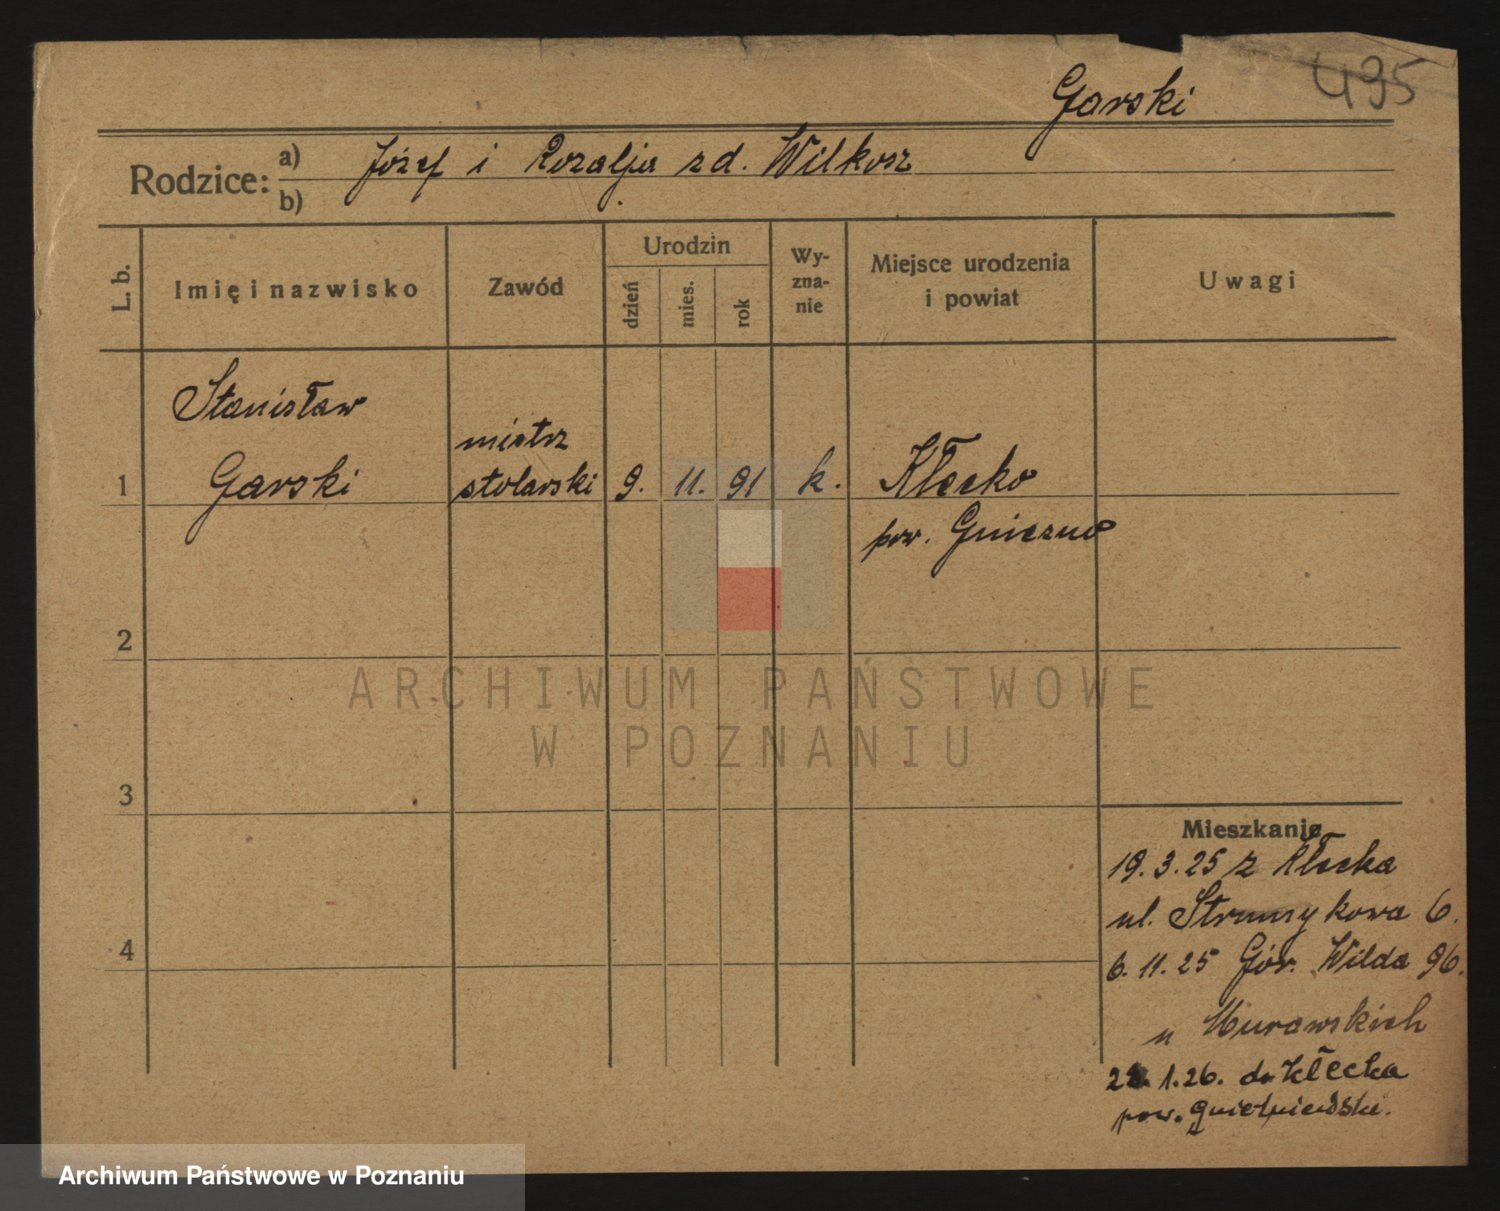 495
Garski
Rodzice: a) Józef i Rozalja zd. Wilkosz
b)
L. b.
Imię i nazwisko
Zawód
Urodzin
dzień
mies.
rok
Wy-
zna-
nie
Miejsce urodzenia
i powiat
Uwagi
Stanisław
mistrz
1 Garski stolarski 9. 11. 91 k. Kłecko
pow. Gniezno
2
ARCHIWUM PAŃSTWOWE
W POZNANIU
3
Mieszkanie
19.3.25 z Kłecka
ul. Strumykowa 6.
4
6.11.25 Gór. Wilda 96.
u Murawskich
1.26. do Kłecka
pow.
Archiwum Państwowe w Poznaniu